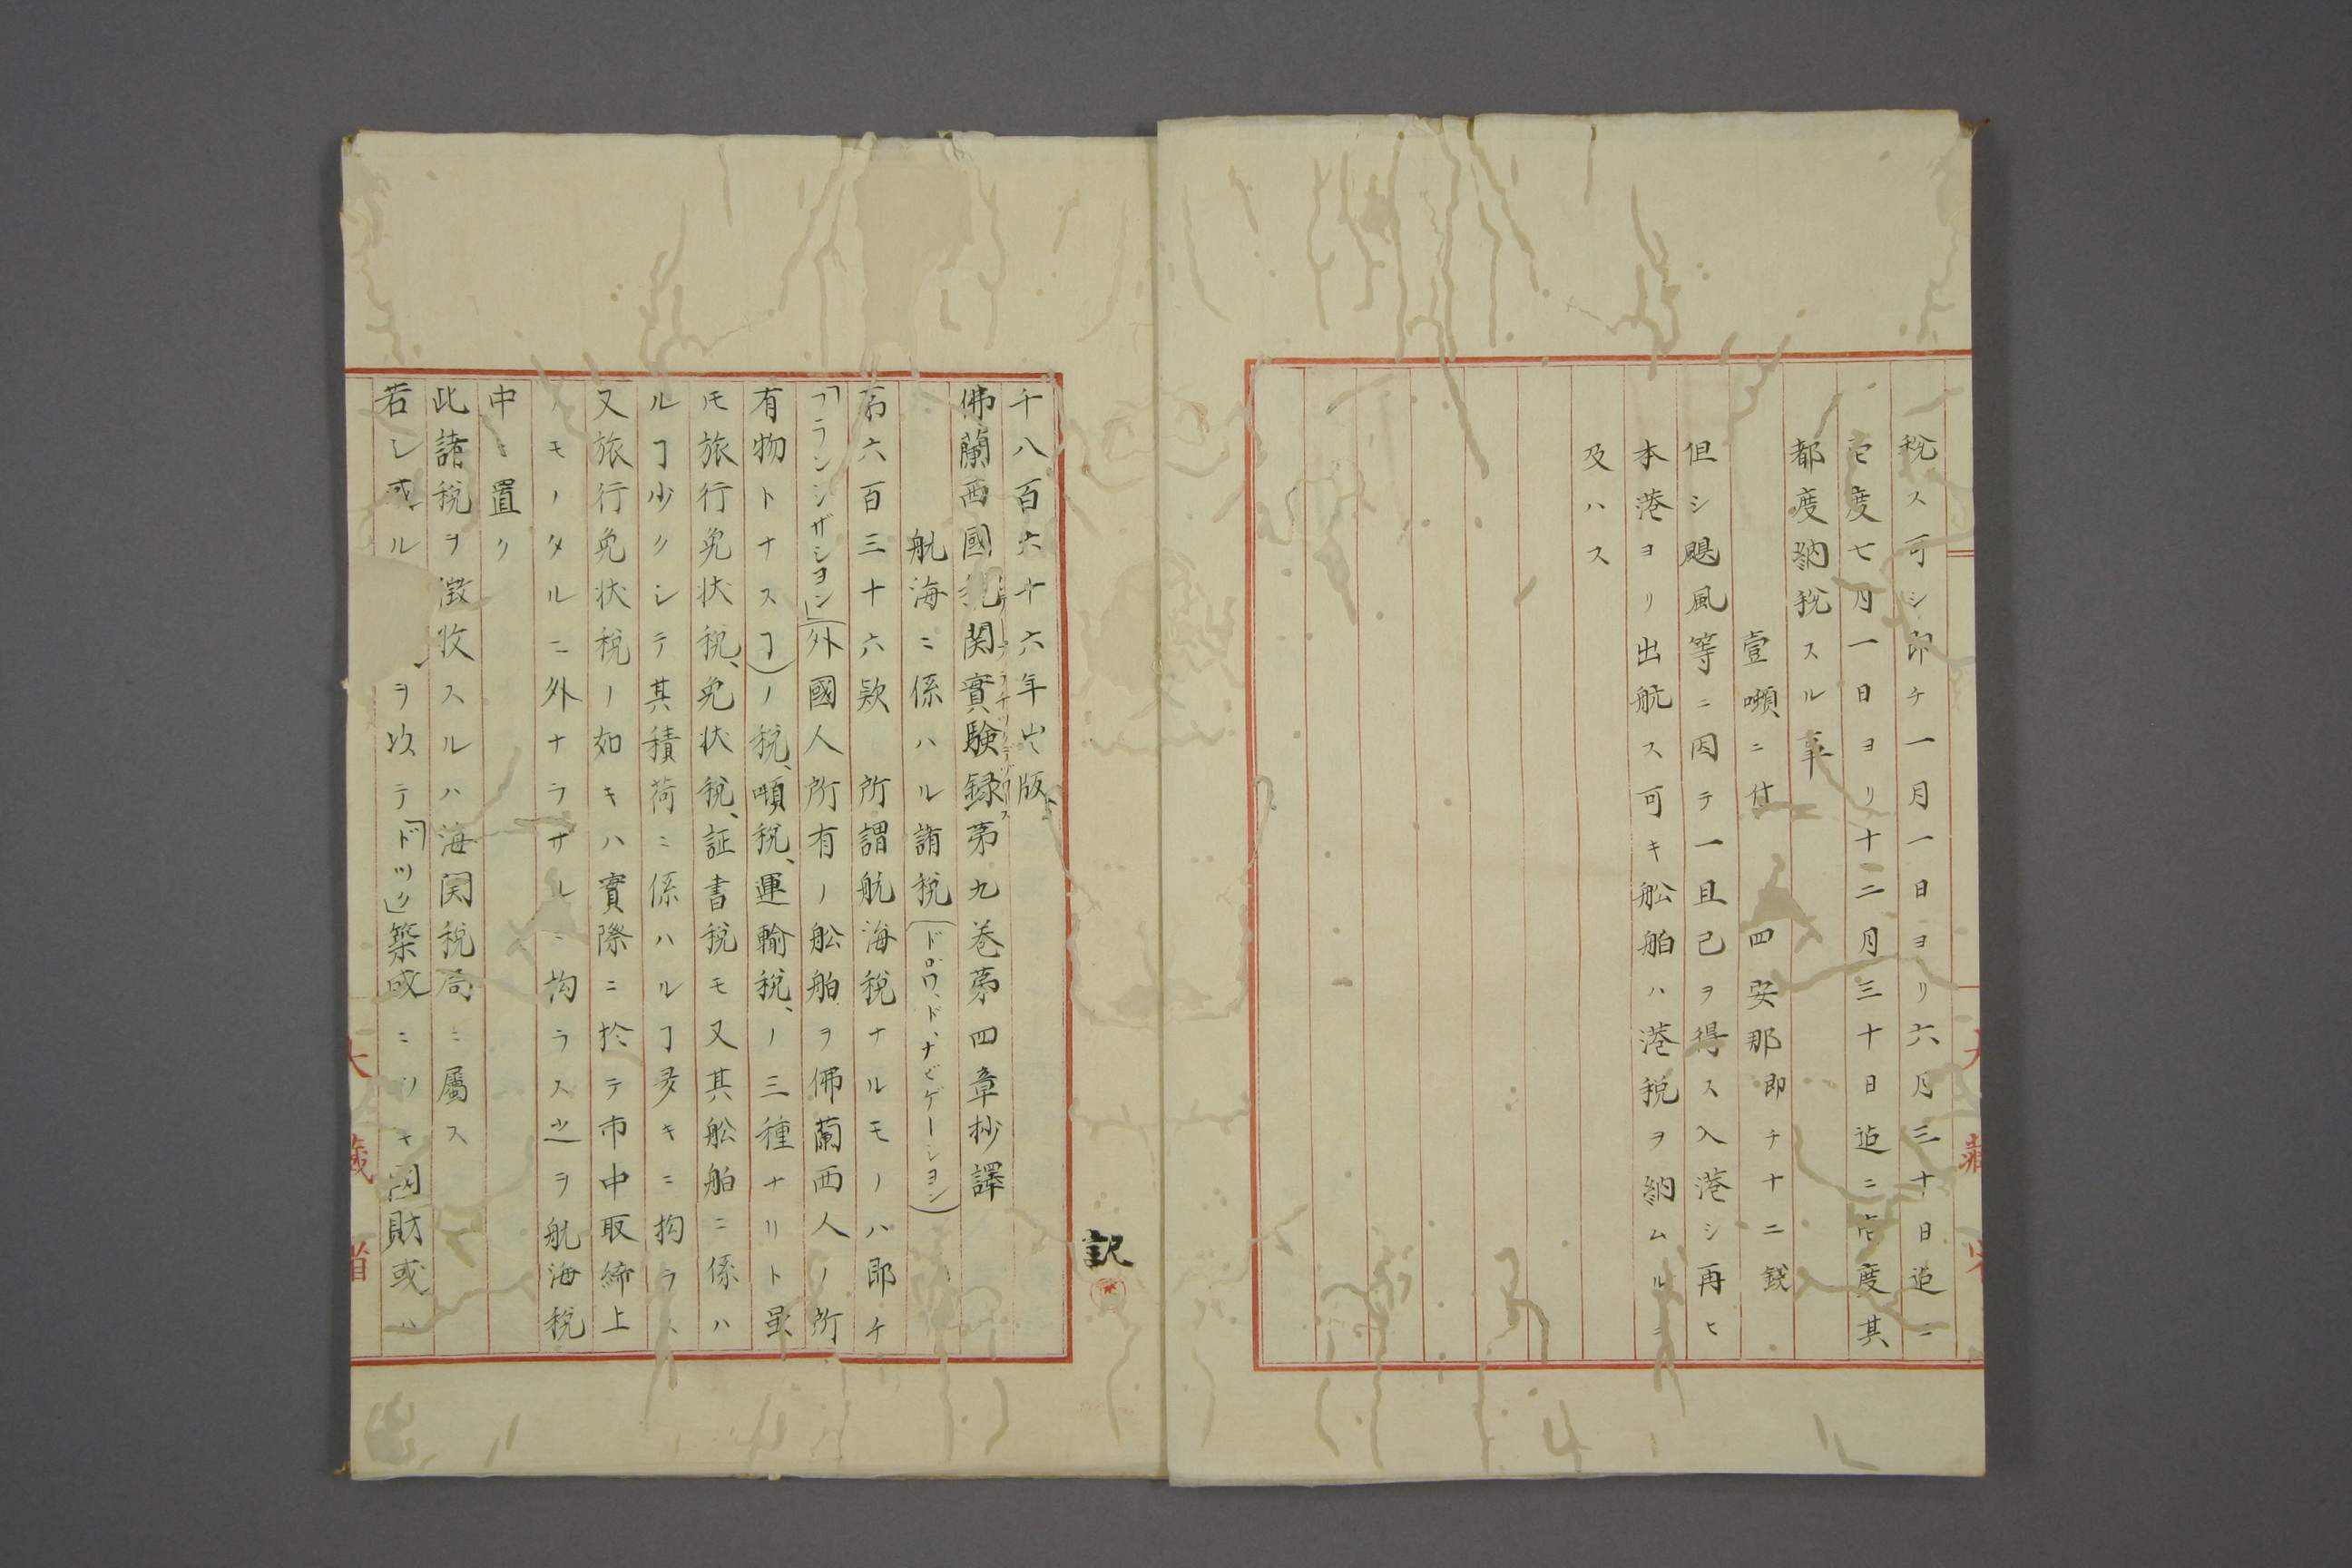 税ス可シ即チ一月一日ヨリ六月三十日迠ニ
壱度七月一日ヨリ十二月三十日迠ニ壱度其
都度納税スル事
壹噸ニ付 四安那即チ十二銭
但シ颶風等ニ因テ一旦己ヲ得ス入港シ再ヒ
本港ヨリ出航ス可キ舩舶ハ港税ヲ納ムルニ
及ハス
大藏省
記
千八百六十六年出版
佛蘭西國税関實験録第九巻第四章抄譯
航海ニ係ハル諸税(ドロワ、ド、ナビゲーションヨン)
第六百三十六款 所謂航海税ナルモノハ即チ
「フランシザシヨン」(外國人所有ノ舩舶ヲ佛蘭西人ノ所
有物トナスヿ)ノ税、噸税、運輸税、ノ三種ナリト虽
モ旅行免状税、免状税、証書税モ又其舩舶ニ係ハ
ルヿ少クシテ其積荷ニ係ハルヿ多キニ拘ラス
又旅行免状税ノ如キハ實際ニ於テ市中取締上
ノモノタルニ外ナラザルニ拘ラス之ヲ航海税
中ニ置ク
此諸税ヲ徴收スルハ海関税局ニ屬ス
若シ或ル ヲ以テ「ドツク」築成ニツキ國財或ハ
大藏省